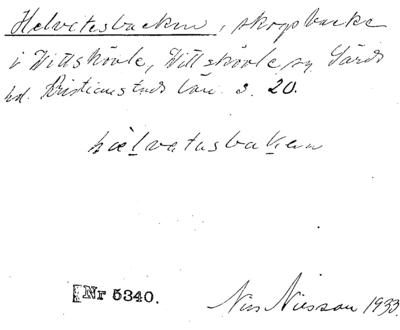 Helvetesbacken, skogsbacke
i Vittskövle, Vittskövle sn. Gärds
hd. Kristianstads län. s. 20.
hælvatasbakenn
Nr 5340.
Nils Nilsson 1933.